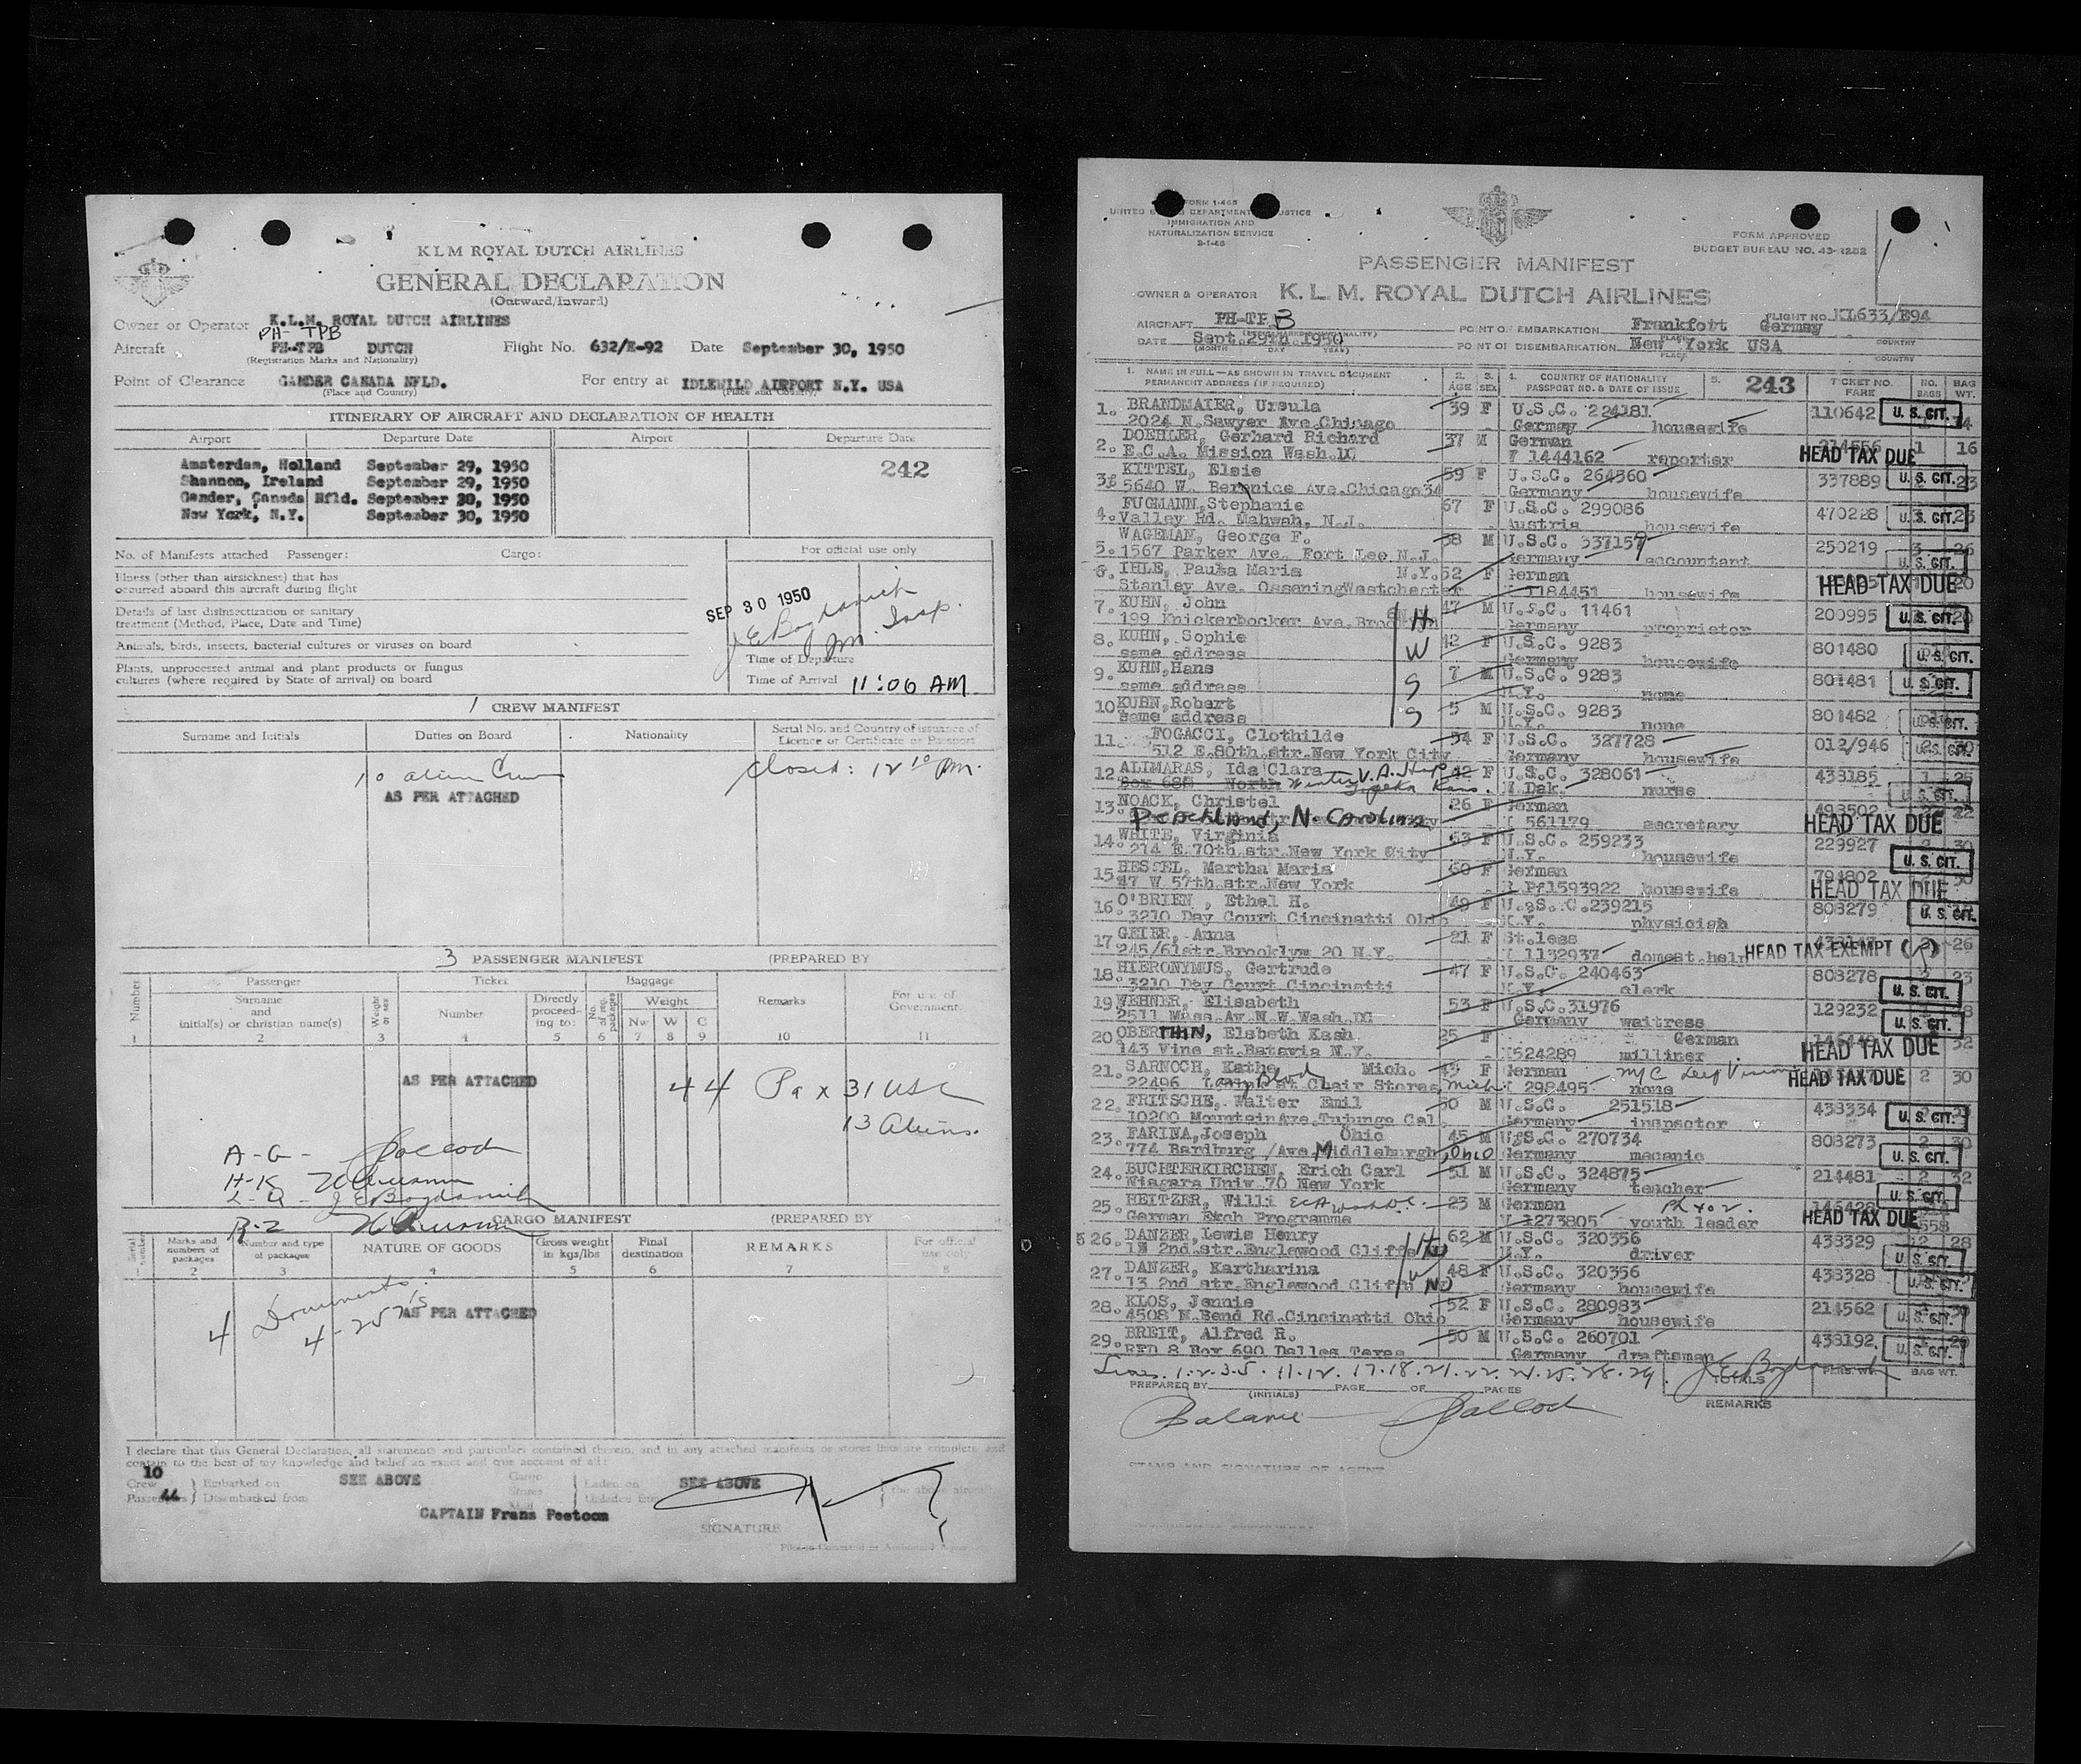 K L M ROYAL DUTCH AIRLINES
GENERAL DECLARATION
(Outward/Inward)
Owner or Operator K.L.M. ROYAL DUTCH AIRLINES
PH-TPB
Aircraft PH-TPB DUTCH Flight No. 632/E-92 Date September 30, 1950
(Registration Marks and Nationality)
Point of Clearance GANDER CANADA NFLD. For entry at IDLEWILD AIRPORT N.Y. USA
(Place and Country) (Place and Country)
ITINERARY OF AIRCRAFT AND DECLARATION OF HEALTH
Airport Departure Date Airport Departure Date
242
Amsterdam, Holland September 29, 1950
Shannon, Ireland September 29, 1950
Gander, Canada Nfld. September 30, 1950
New York, N.Y. September 30, 1950
No. of Manifests attached Passenger: Cargo:
For official use only
Illness (other than airsickness) that has
occurred aboard this aircraft during flight
Details of last disinsectization or sanitary
treatment (Method, Place, Date and Time)
Animals, birds, insects, bacterial cultures or viruses on board
Plants, unprocessed animal and plant products or fungus
cultures (where required by State of arrival) on board
SEP 30 1950
J E Bogdanich
Im. Insp.
Time of Departure
Time of Arrival 11:06 AM
1 CREW MANIFEST
Surname and Initials Duties on Board Nationality Serial No. and Country of issuance of
Licence or Certificate or Passport
10 alien Crew closed: 12 10 PM.
AS PER ATTACHED
3 PASSENGER MANIFEST (PREPARED BY
Number Passenger Ticket Baggage Remarks For use of
Government
Surname
and
initial(s) or christian name(s)
Weight or sex
Number
Directly
proceed-
ing to:
No. of reg. packages
Weight
Nw W C
1 2 3 4 5 6 7 8 9 10 11
AS PER ATTACHED 44 Pax 31 USC
13 Aliens.
A-G-
H-K
L-Q- J E Bogdanich
R-Z
CARGO MANIFEST (PREPARED BY
Serial number
Marks and
numbers of
packages
Number and type
of packages
NATURE OF GOODS
Gross weight
in kgs/lbs
Final
destination
REMARKS
For official
use only
2 3 4 5 6 7 8
4 Documents.
4-257's
AS PER ATTACHED
I declare that this General Declaration, all statements and particulars contained therein, and in any attached manifests or stores lists are complete and
contain to the best of my knowledge and belief an exact and true account of all:
10
Crew Embarked on SEE ABOVE Cargo Stores Mail Laden on SEE ABOVE
Passengers 44 Disembarked from Unladen from the above aircraft.
CAPTAIN Frans Peetoom
SIGNATURE
Pilot-in-Command or Authorized Agent
FORM I-466
UNITED STATES DEPARTMENT OF JUSTICE
IMMIGRATION AND
NATURALIZATION SERVICE
FORM APPROVED
BUDGET BUREAU NO. 43-R282
PASSENGER MANIFEST
OWNER & OPERATOR K. L. M. ROYAL DUTCH AIRLINES
AIRCRAFT PH-TPB POINT OF EMBARKATION Frankfort Germay FLIGHT NO. KL633/E94
DATE Sept.29th 1950 POINT OF DISEMBARKATION New York USA
(MONTH DAY YEAR) PLACE COUNTRY
1. NAME IN FULL—AS SHOWN IN TRAVEL DOCUMENT
PERMANENT ADDRESS (IF REQUIRED)
2. AGE 3. SEX 4. COUNTRY OF NATIONALITY
PASSPORT NO. & DATE OF ISSUE
5. 243 TICKET NO. FARE NO. BAGS BAG WT.
1. BRANDMAIER, Ursula 39 F U.S.C. 224181 110642 U. S. CIT.
2024 N.Sawyer Ave Chicago Germay housewife
2. DOEHLER, Gerhard Richard 37 M German 1 16
E.C.A. Mission Wash.DC 1444162 reporter HEAD TAX DUE
3. KITTEL, Elsie 59 F U.S.C. 264360 337889 U. S. CIT. 23
5640 W. Bernice Ave.Chicago34 Germany housewife
4. FUGMANN,Stephanie 67 F U.S.C. 299086 470228 U. S. CIT.
Valley Rd. Mahwah, N.J. Austria housewife
5. WAGEMAN, George F. 38 M U.S.C. 337157 250219 3 26
1567 Parker Ave. Fort Lee N.J. Germany accountant U. S. CIT.
6. IHLE, Paula Maria N.Y. 52 F German
Stanley Ave. OsseningWestchester 1184451 housewife HEAD TAX DUE
7. KUHN, John 47 M U.S.C. 11461 200995 U. S. CIT.
199 Knickerbocker Ave.Brooklyn H Germany proprietor
8. KUHN, Sophie W 42 F U.S.C. 9283 801480 U. S. CIT.
same address Germany housewife
9. KUHN,Hans S 7 M U.S.C. 9283 801481 U. S. CIT.
same address N.Y. none
10 KUHN,Robert S 5 M U.S.C. 9283 801482 U. S. CIT.
same address N.Y. none
11. FOGACCI, Clothilde 54 F U.S.C. 327728 012/946 U. S. CIT.
512 E.80th.str.New York City housewife
12 ALIMARAS, Ida Clara 42 F U.S.C. 328061 433185 1 25
Box 688 North Winter V.A. Hosp Topeka Kans. N.Dak. nurse U. S. CIT.
13. NOACK, Christel 26 F German 493502 22
Peachland, N. Carolina 561179 secretary HEAD TAX DUE
14. WHITE, Virginia 53 F U.S.C. 259233 229927 30
214 E.70th.str.New York City N.Y. housewife U. S. CIT.
15 HESSEL, Martha Maria 60 F German 794802
47 W 57th.str.New York 1593922 housewife HEAD TAX DUE
16 O'BRIEN , Ethel H. 49 F U.S.C.239215 803279 U. S. CIT.
3210 Day Court Cincinatti Ohio N.Y. physician
17 GEIER, Anna 21 F St.less 26
245/61str.Brooklym 20 N.Y. 1132937 domest.help HEAD TAX EXEMPT
18 HIERONYMUS, Gertrude 47 F U.S.C. 240463 803278 23
3210 Day Court Cincinatti N.Y. clerk U. S. CIT.
19 WEHNER, Elisabeth 53 F U.S.C.31976 129232
2511 Mass.Av.N.W.Wash.DC Germany waitress U. S. CIT.
20 OBERTHIN, Elsbeth Kash 25 F German 32
143 Vine st.Batavia N.Y. 1524289 milliner HEAD TAX DUE
21. SARNOCH, Kathe Mich. F German 2 30
22496 Clair Stores, Mich. 298495 none HEAD TAX DUE
22. FRITSCHE, Walter Emil 50 M U.S.C. 251518 433334
10200 MountainAve.Tujungo Cal. Germany inspector U. S. CIT.
23. FARINA,Joseph Ohio 45 M U.S.C. 270734 803273 2 30
774 Bardburg /Ave.Middleburgh,Ohio Germany mecanic U. S. CIT.
24. BUCHTERKIRCHEN, Erich Carl 51 M U.S.C. 324875 214481 2 32
Niagara Univ.70 New York Germany teacher U. S. CIT.
25. HEITZER, Willi 23 M German 146428
German Exch Programme 1273805 youth leader HEAD TAX DUE
5 26. DANZER,Lewis Henry H 62 M U.S.C. 320356 433329 2 28
13 2nd.str.Englewood Cliffs NJ N.Y. driver U. S. CIT.
27. DANZER, Kartharina W 48 F U.S.C. 320356 433328
13 2nd.str.Englewood Cliffs NJ Germany housewife U. S. CIT.
28. KLOS, Jennie 52 F U.S.C. 280983 214562
4508 N.Bend Rd.Cincinatti Ohio Germany housewife U. S. CIT.
29. BREIT, Alfred R. 50 M U.S.C. 260701 433192
RFD 8 Box 690 Dallas Texas Germany draftsman U. S. CIT.
Lines. 1-2-3-5-11-12-17-18-21-22-24-25-28-29. J E Bogdanich
PREPARED BY (INITIALS) PAGE OF PAGES TOTALS PERS. WT. BAG WT.
REMARKS
Balance
STAMP AND SIGNATURE OF AGENT